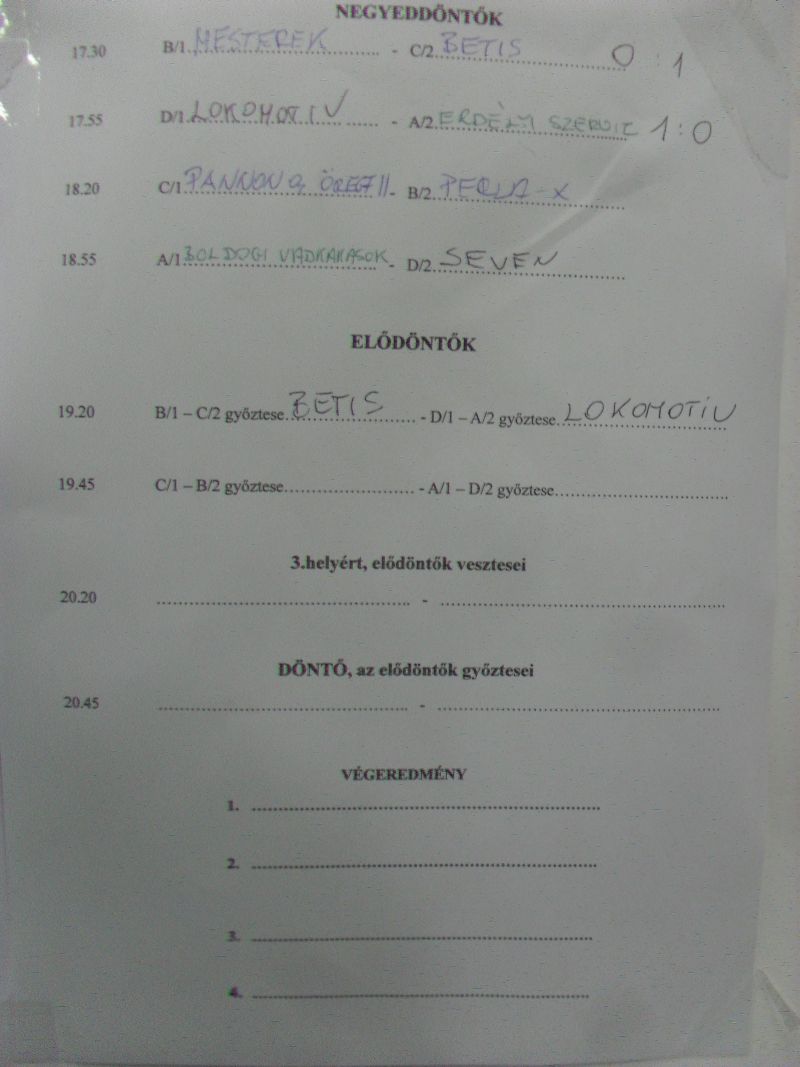 NEGYEDDÖNTŐK
17.30 B/1 MESTEREK - C/2 BETIS 0 : 1
17.55 D/1 LOKOMOTIV - A/2 ERDÉLYI SZERVIZ 1:0
18.20 C/1 PANNON ÖREG II - B/2 PERLA-X
18.55 A/1 BOLDOGI VADKAKASOK - D/2 SEVEN
ELŐDÖNTŐK
19.20 B/1 – C/2 győztese BETIS - D/1 – A/2 győztese LOKOMOTIV
19.45 C/1 – B/2 győztese - A/1 – D/2 győztese
3.helyért, elődöntők vesztesei
20.20 -
DÖNTŐ, az elődöntők győztesei
20.45 -
VÉGEREDMÉNY
1.
2.
3.
4.